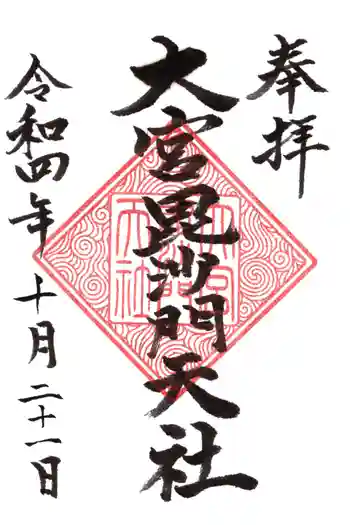 奉拝
大宮毘沙門天社
令和四年十月二十一日